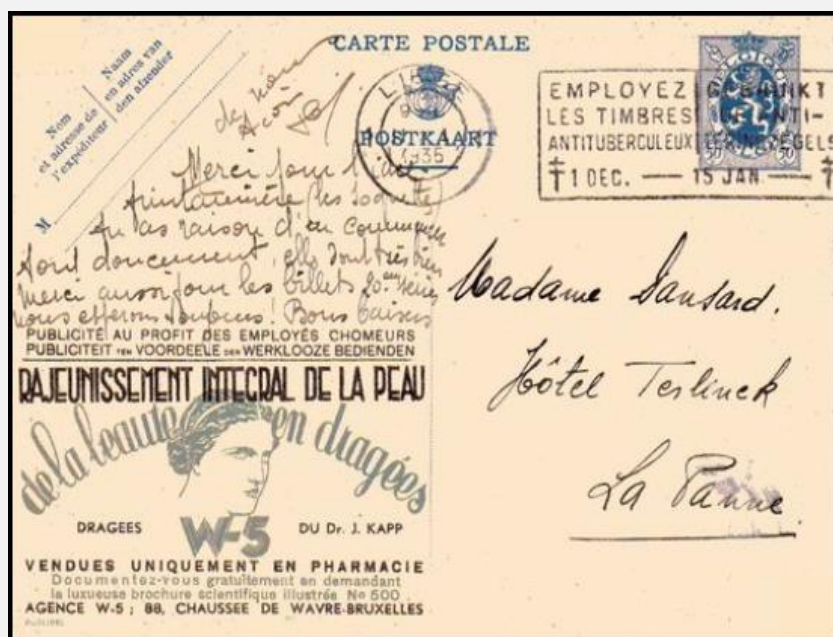 CARTE POSTALE
POSTKAART
Nom
et adresse de
l'expéditeur
Naam
en adres van
den afzender
M
LIEGE
1935
BELGIQUE
50 50
EMPLOYEZ GEBRUIKT
LES TIMBRES DE ANTI-
ANTITUBERCULEUX TERINGZEGELS
1 DEC. — 15 JAN.
Merci pour
printannière les soquettes
tu as raison d'en commencer
tout doucement, elles sont très bien
Merci aussi pour les billets 20em séries
nous espérons toujours! Bons baisers
Madame Dansard.
Hôtel Terlinck
La Panne
PUBLICITÉ AU PROFIT DES EMPLOYÉS CHOMEURS
PUBLICITEIT TEN VOORDEELE DER WERKLOOZE BEDIENDEN
RAJEUNISSEMENT INTEGRAL DE LA PEAU
de la beauté en dragées
DRAGEES W-5 DU Dr. J. KAPP
VENDUES UNIQUEMENT EN PHARMACIE
Documentez-vous gratuitement en demandant
la luxueuse brochure scientifique illustrée No 500
AGENCE W-5 ; 88, CHAUSSEE DE WAVRE-BRUXELLES